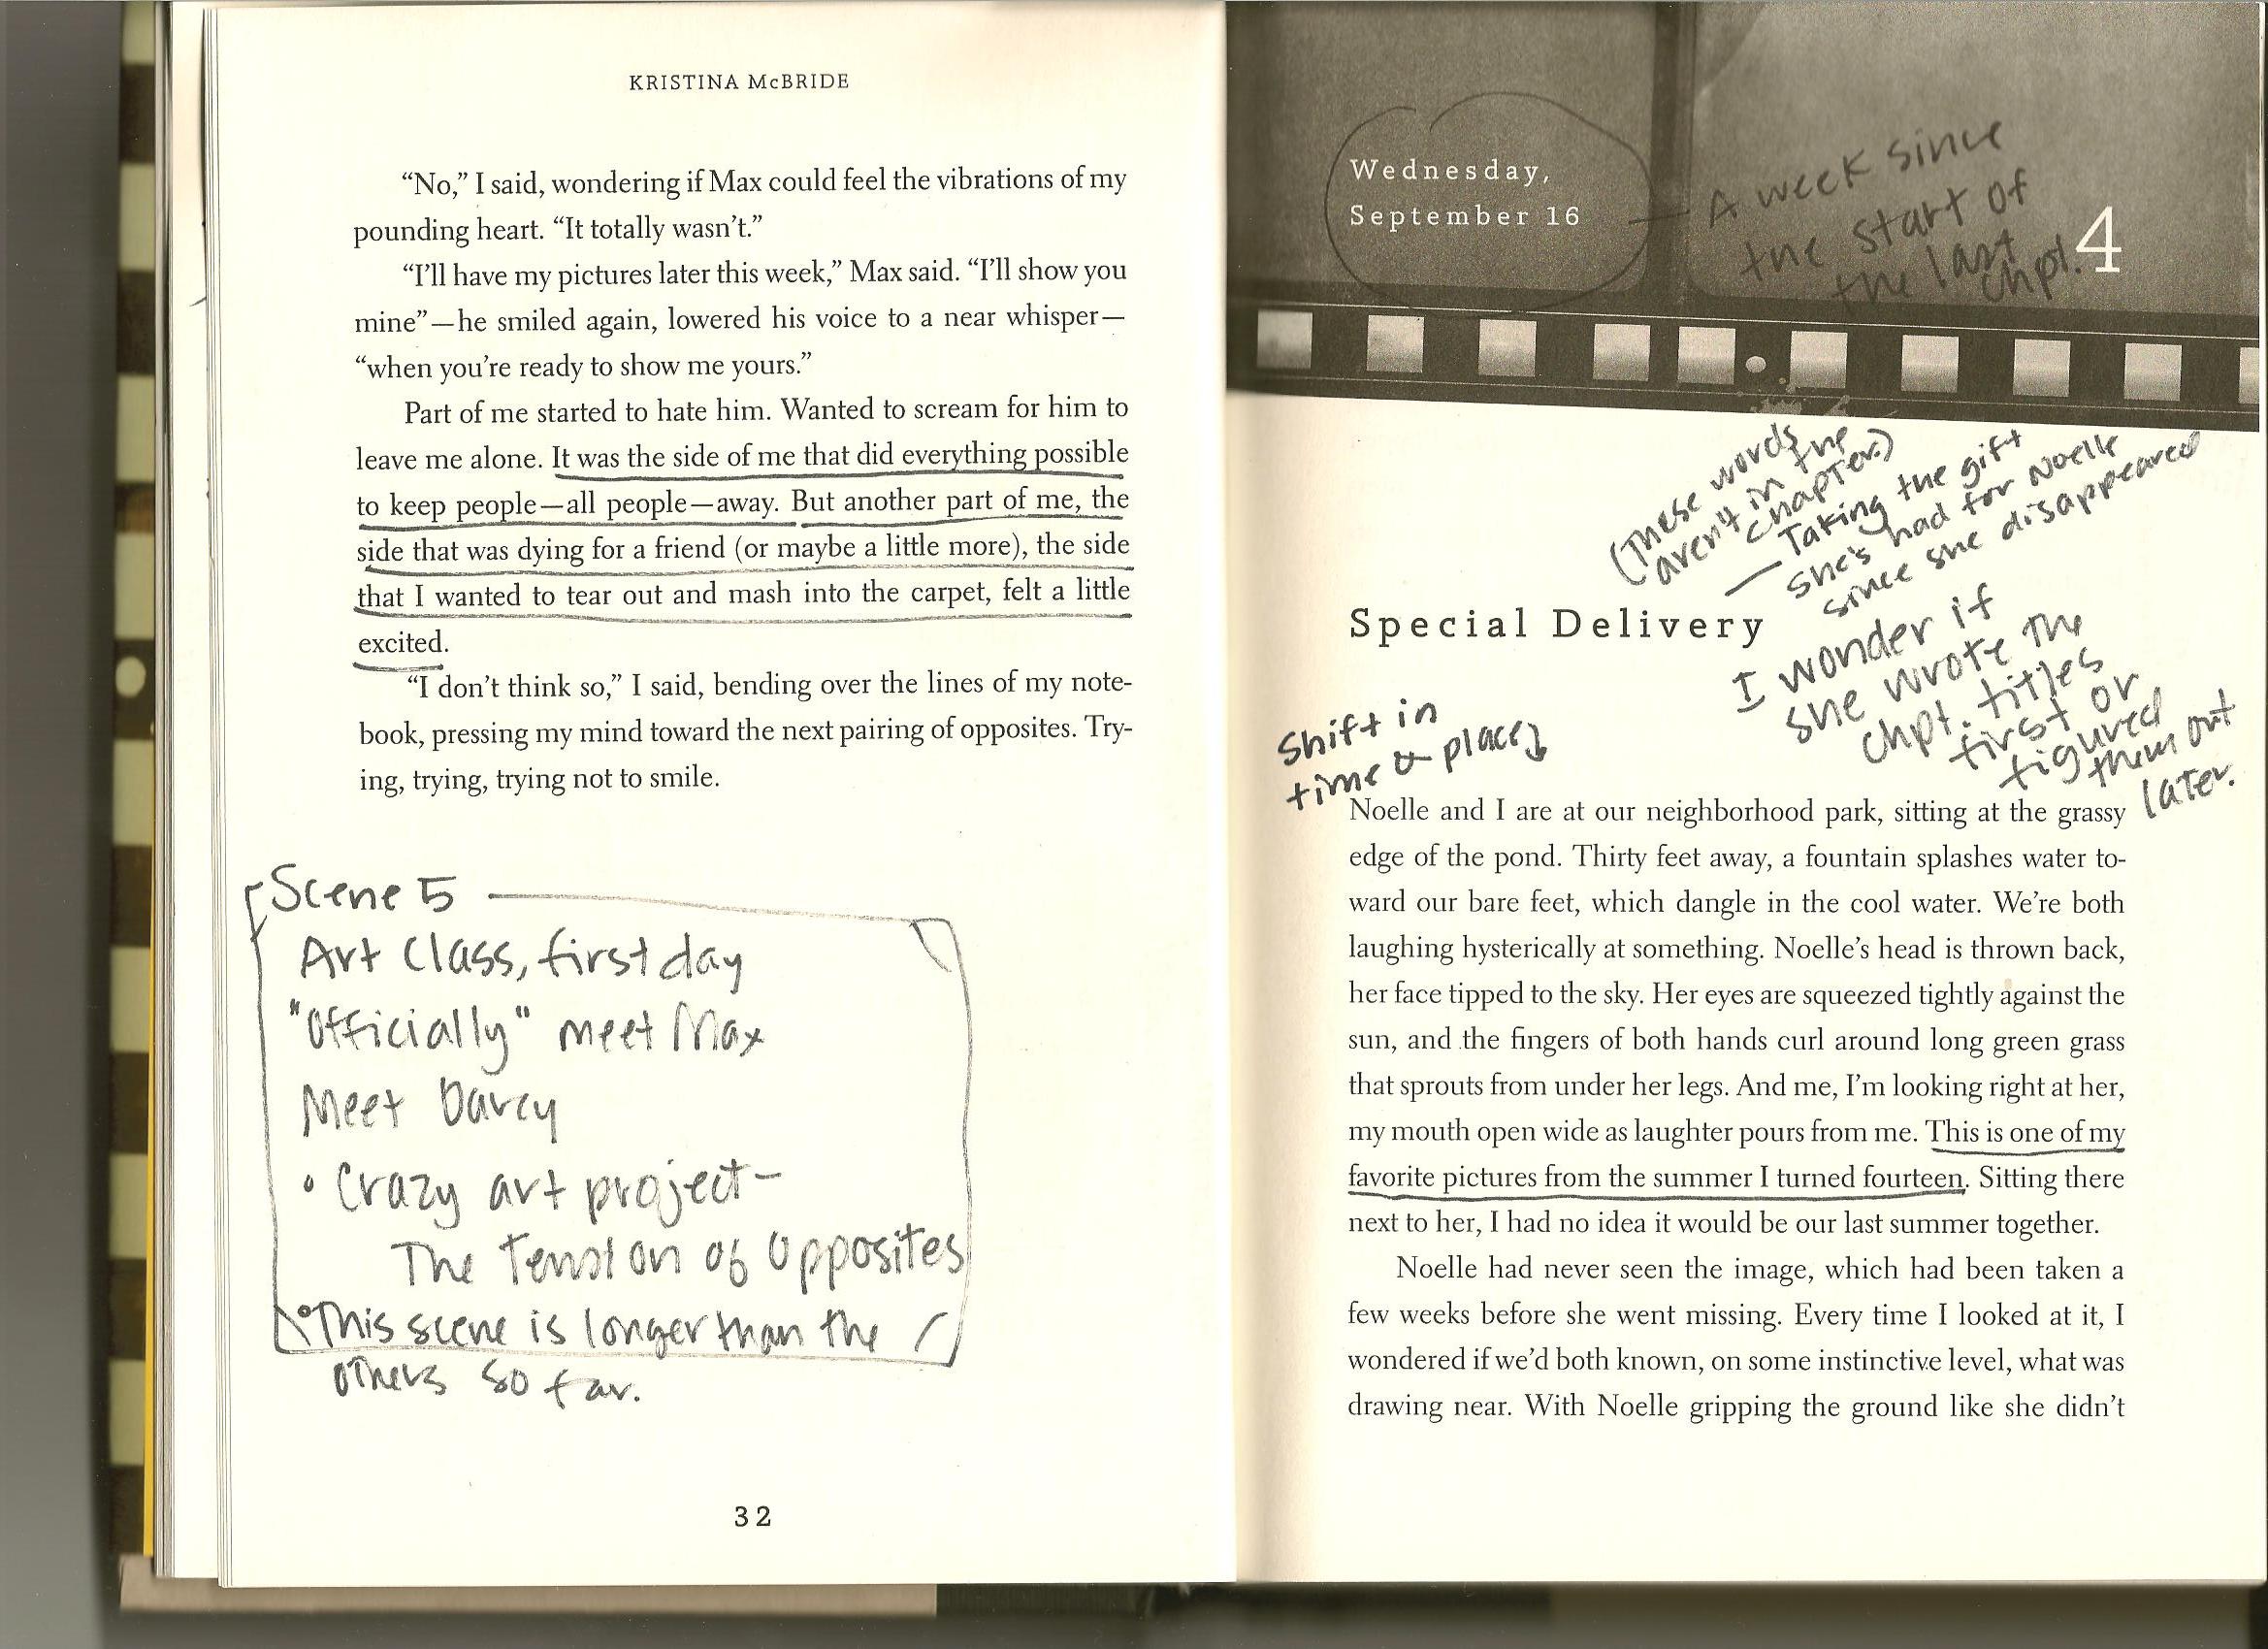 KRISTINA McBRIDE
“No,” I said, wondering if Max could feel the vibrations of my
pounding heart. “It totally wasn’t.”
“I’ll have my pictures later this week,” Max said. “I’ll show you
mine”—he smiled again, lowered his voice to a near whisper—
“when you’re ready to show me yours.”
Part of me started to hate him. Wanted to scream for him to
leave me alone. It was the side of me that did everything possible
to keep people—all people—away. But another part of me, the
side that was dying for a friend (or maybe a little more), the side
that I wanted to tear out and mash into the carpet, felt a little
excited.
“I don’t think so,” I said, bending over the lines of my note-
book, pressing my mind toward the next pairing of opposites. Try-
ing, trying, trying not to smile.
Scene 5
Art Class, first day
"Officially" meet Max
Meet Darcy
• Crazy art project-
The Tension of Opposites
• This scene is longer than the
others so far.
32
Wednesday,
September 16
A week since
the start of
the last
chpt.
4
(These words
aren't in the
chapter.)
— Taking the gift
she's had for Noelle
since she disappeared
Special Delivery
I wonder if
she wrote the
chpt. titles
first or
figured
them out
later.
Shift in
time & place
Noelle and I are at our neighborhood park, sitting at the grassy
edge of the pond. Thirty feet away, a fountain splashes water to-
ward our bare feet, which dangle in the cool water. We’re both
laughing hysterically at something. Noelle’s head is thrown back,
her face tipped to the sky. Her eyes are squeezed tightly against the
sun, and the fingers of both hands curl around long green grass
that sprouts from under her legs. And me, I’m looking right at her,
my mouth open wide as laughter pours from me. This is one of my
favorite pictures from the summer I turned fourteen. Sitting there
next to her, I had no idea it would be our last summer together.
Noelle had never seen the image, which had been taken a
few weeks before she went missing. Every time I looked at it, I
wondered if we’d both known, on some instinctive level, what was
drawing near. With Noelle gripping the ground like she didn’t